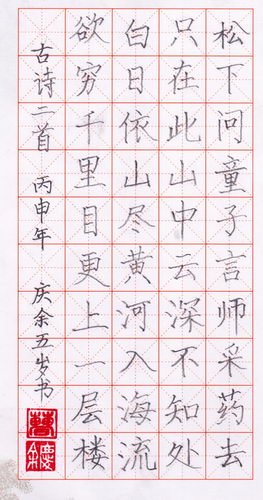 松下问童子言师采药去
只在此山中云深不知处
白日依山尽黄河入海流
欲穷千里目更上一层楼
古诗二首 丙申年 庆余五岁书